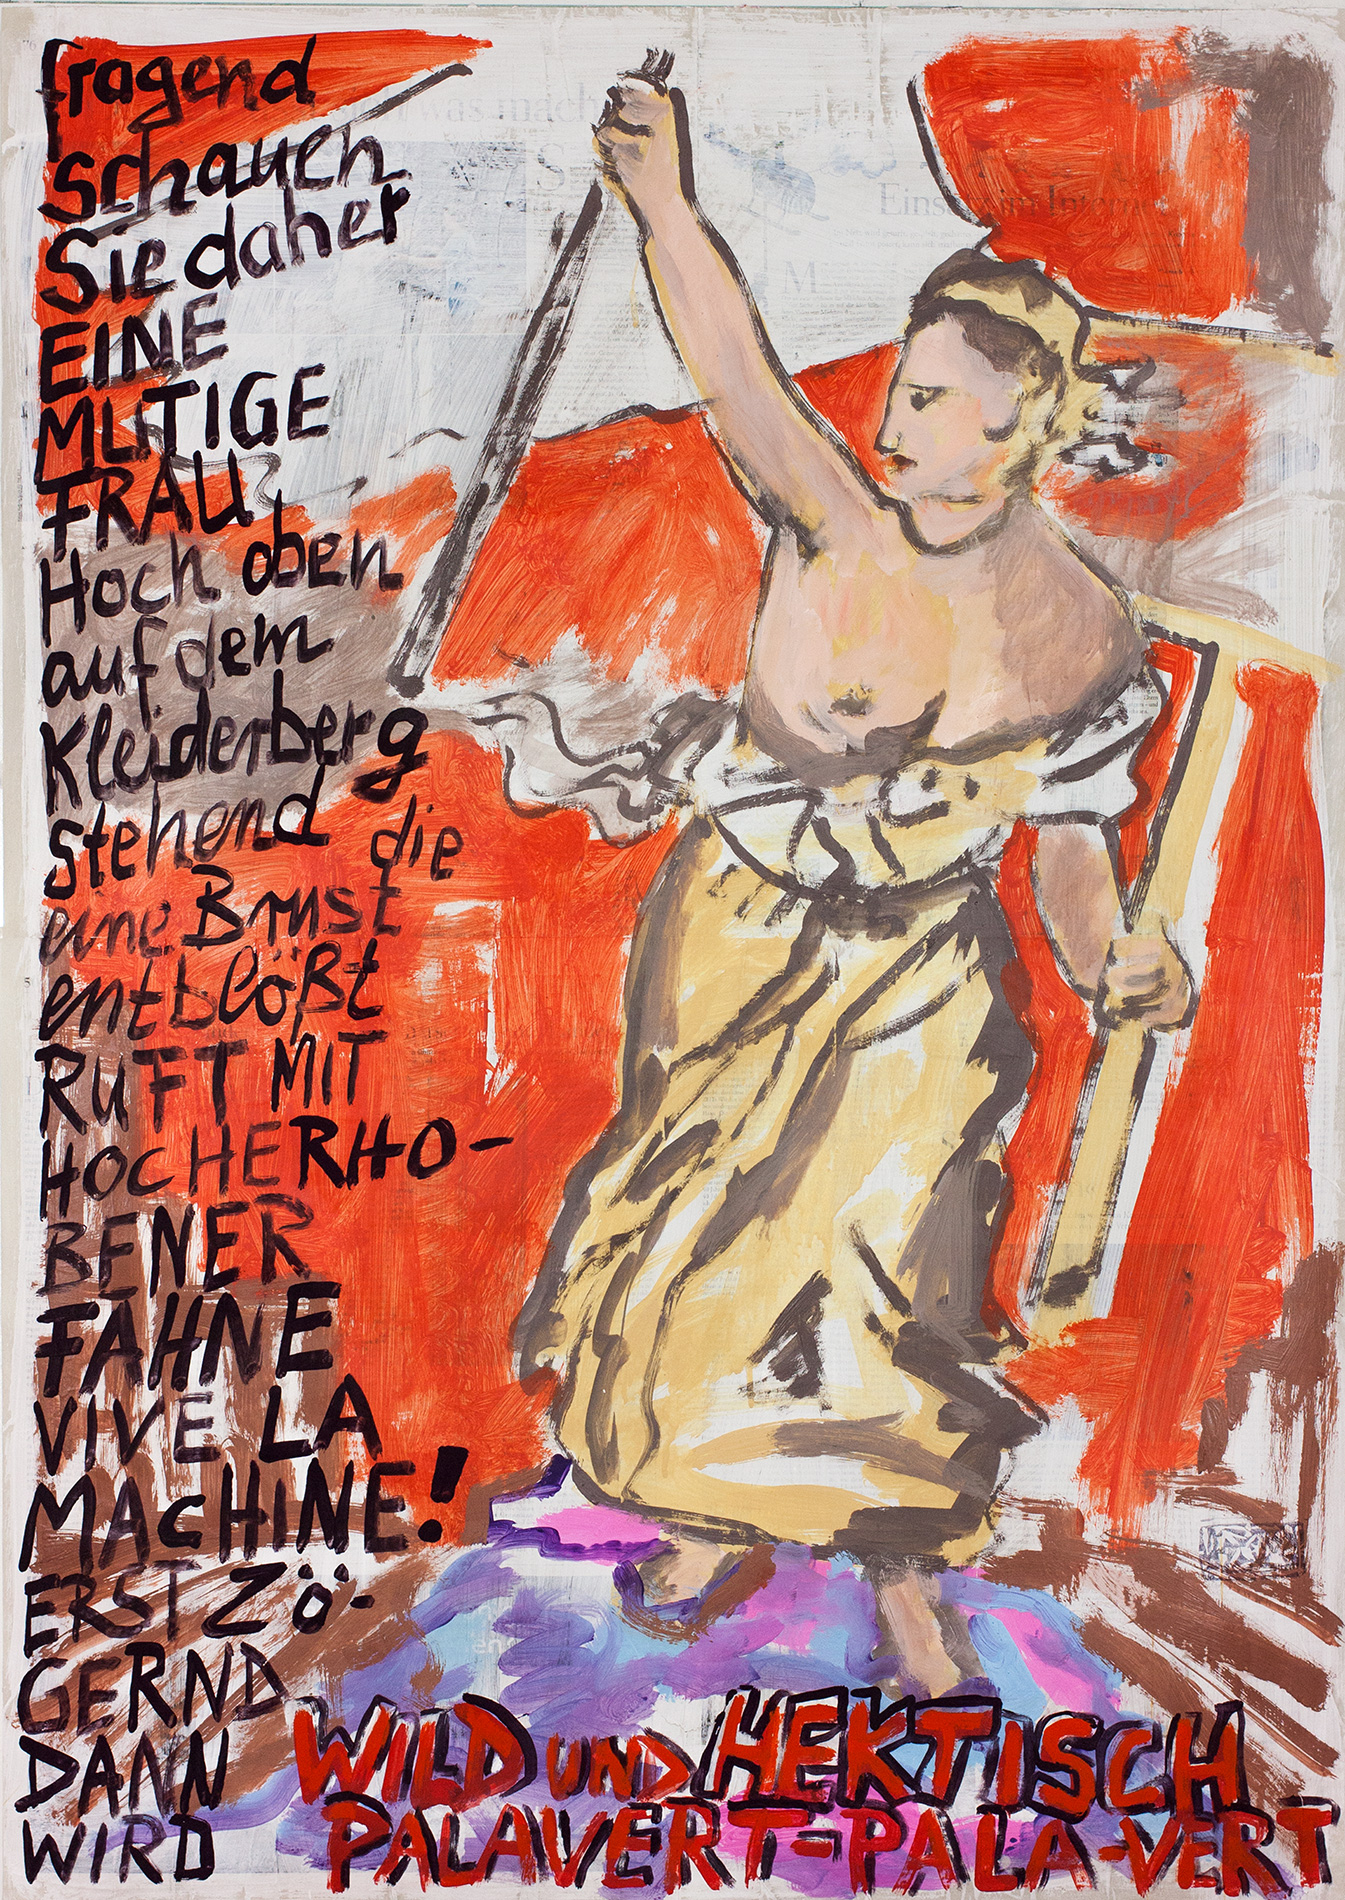 fragend
schauen
Sie daher
EINE
MUTIGE
FRAU
Hoch oben
auf dem
Kleiderberg
stehend die
eine Brust
entblößt
RUFT MIT
HOCHERHO-
BENER
FAHNE
VIVE LA
MACHINE!
ERST ZÖ-
GERND
DANN
WIRD
WILD UND HEKTISCH
PALAVERT-PALA-VERT
was mach
Einsatz im Internet